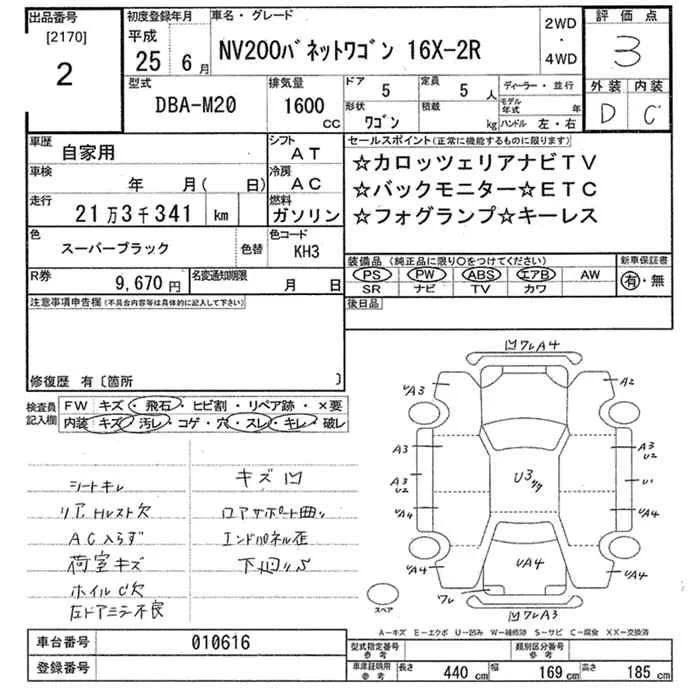 出品番号
[2170]
2
初度登録年月
平成
25年 6月
車名・グレード
NV200バネットワゴン 16X-2R
2WD
・
4WD
評価点
3
外装 内装
D C
型式
DBA-M20
排気量
1600
CC
ドア
5
定員
5 人
形状
ワゴン
積載
kg
ディーラー・並行
モデル年式 年
ハンドル 左・右
車歴
自家用
シフト
AT
車検
年 月( 日)
冷房
AC
走行
21万3千341 km
燃料
ガソリン
色
スーパーブラック
色替
色コード
KH3
R券
9,670円
名変通知期限
月 日
セールスポイント(正常に機能するものに限ります)
☆カロッツェリアナビTV
☆バックモニター☆ETC
☆フォグランプ☆キーレス
装備品(純正品に限り○をつけてください)
新車保証書
PS PW ABS エアB AW
SR ナビ TV カワ
有・無
後日品
注意事項申告欄(不具合内容等は具体的に記入して下さい)
修復歴 有〔箇所 〕
検査員
記入欄
FW キズ・飛石・ヒビ割・リペア跡・×要
内装 キズ・汚レ・コゲ・穴・スレ・キレ・破レ
シートキレ
リアHレスト欠
AC入らず
荷室キズ
ホイルC欠
左ドアミラー不良
キズ凹
ロアサポート曲り
エンドパネル歪
下廻りS
凹ワレA4
UA3
A2
A3
A3
U2
A3
U2
U1
UA4
UA4
U3
UA4
UA4
UA4
ワレ
凹ワレA3
スペア
A-キズ E-エクボ U-凹み W-補修跡 S-サビ C-腐食 XX-交換済
車台番号
010616
登録番号
型式指定番号
参考
類別区分番号
参考
車庫証明用
参考
長さ 440 cm
幅 169 cm
高さ 185 cm